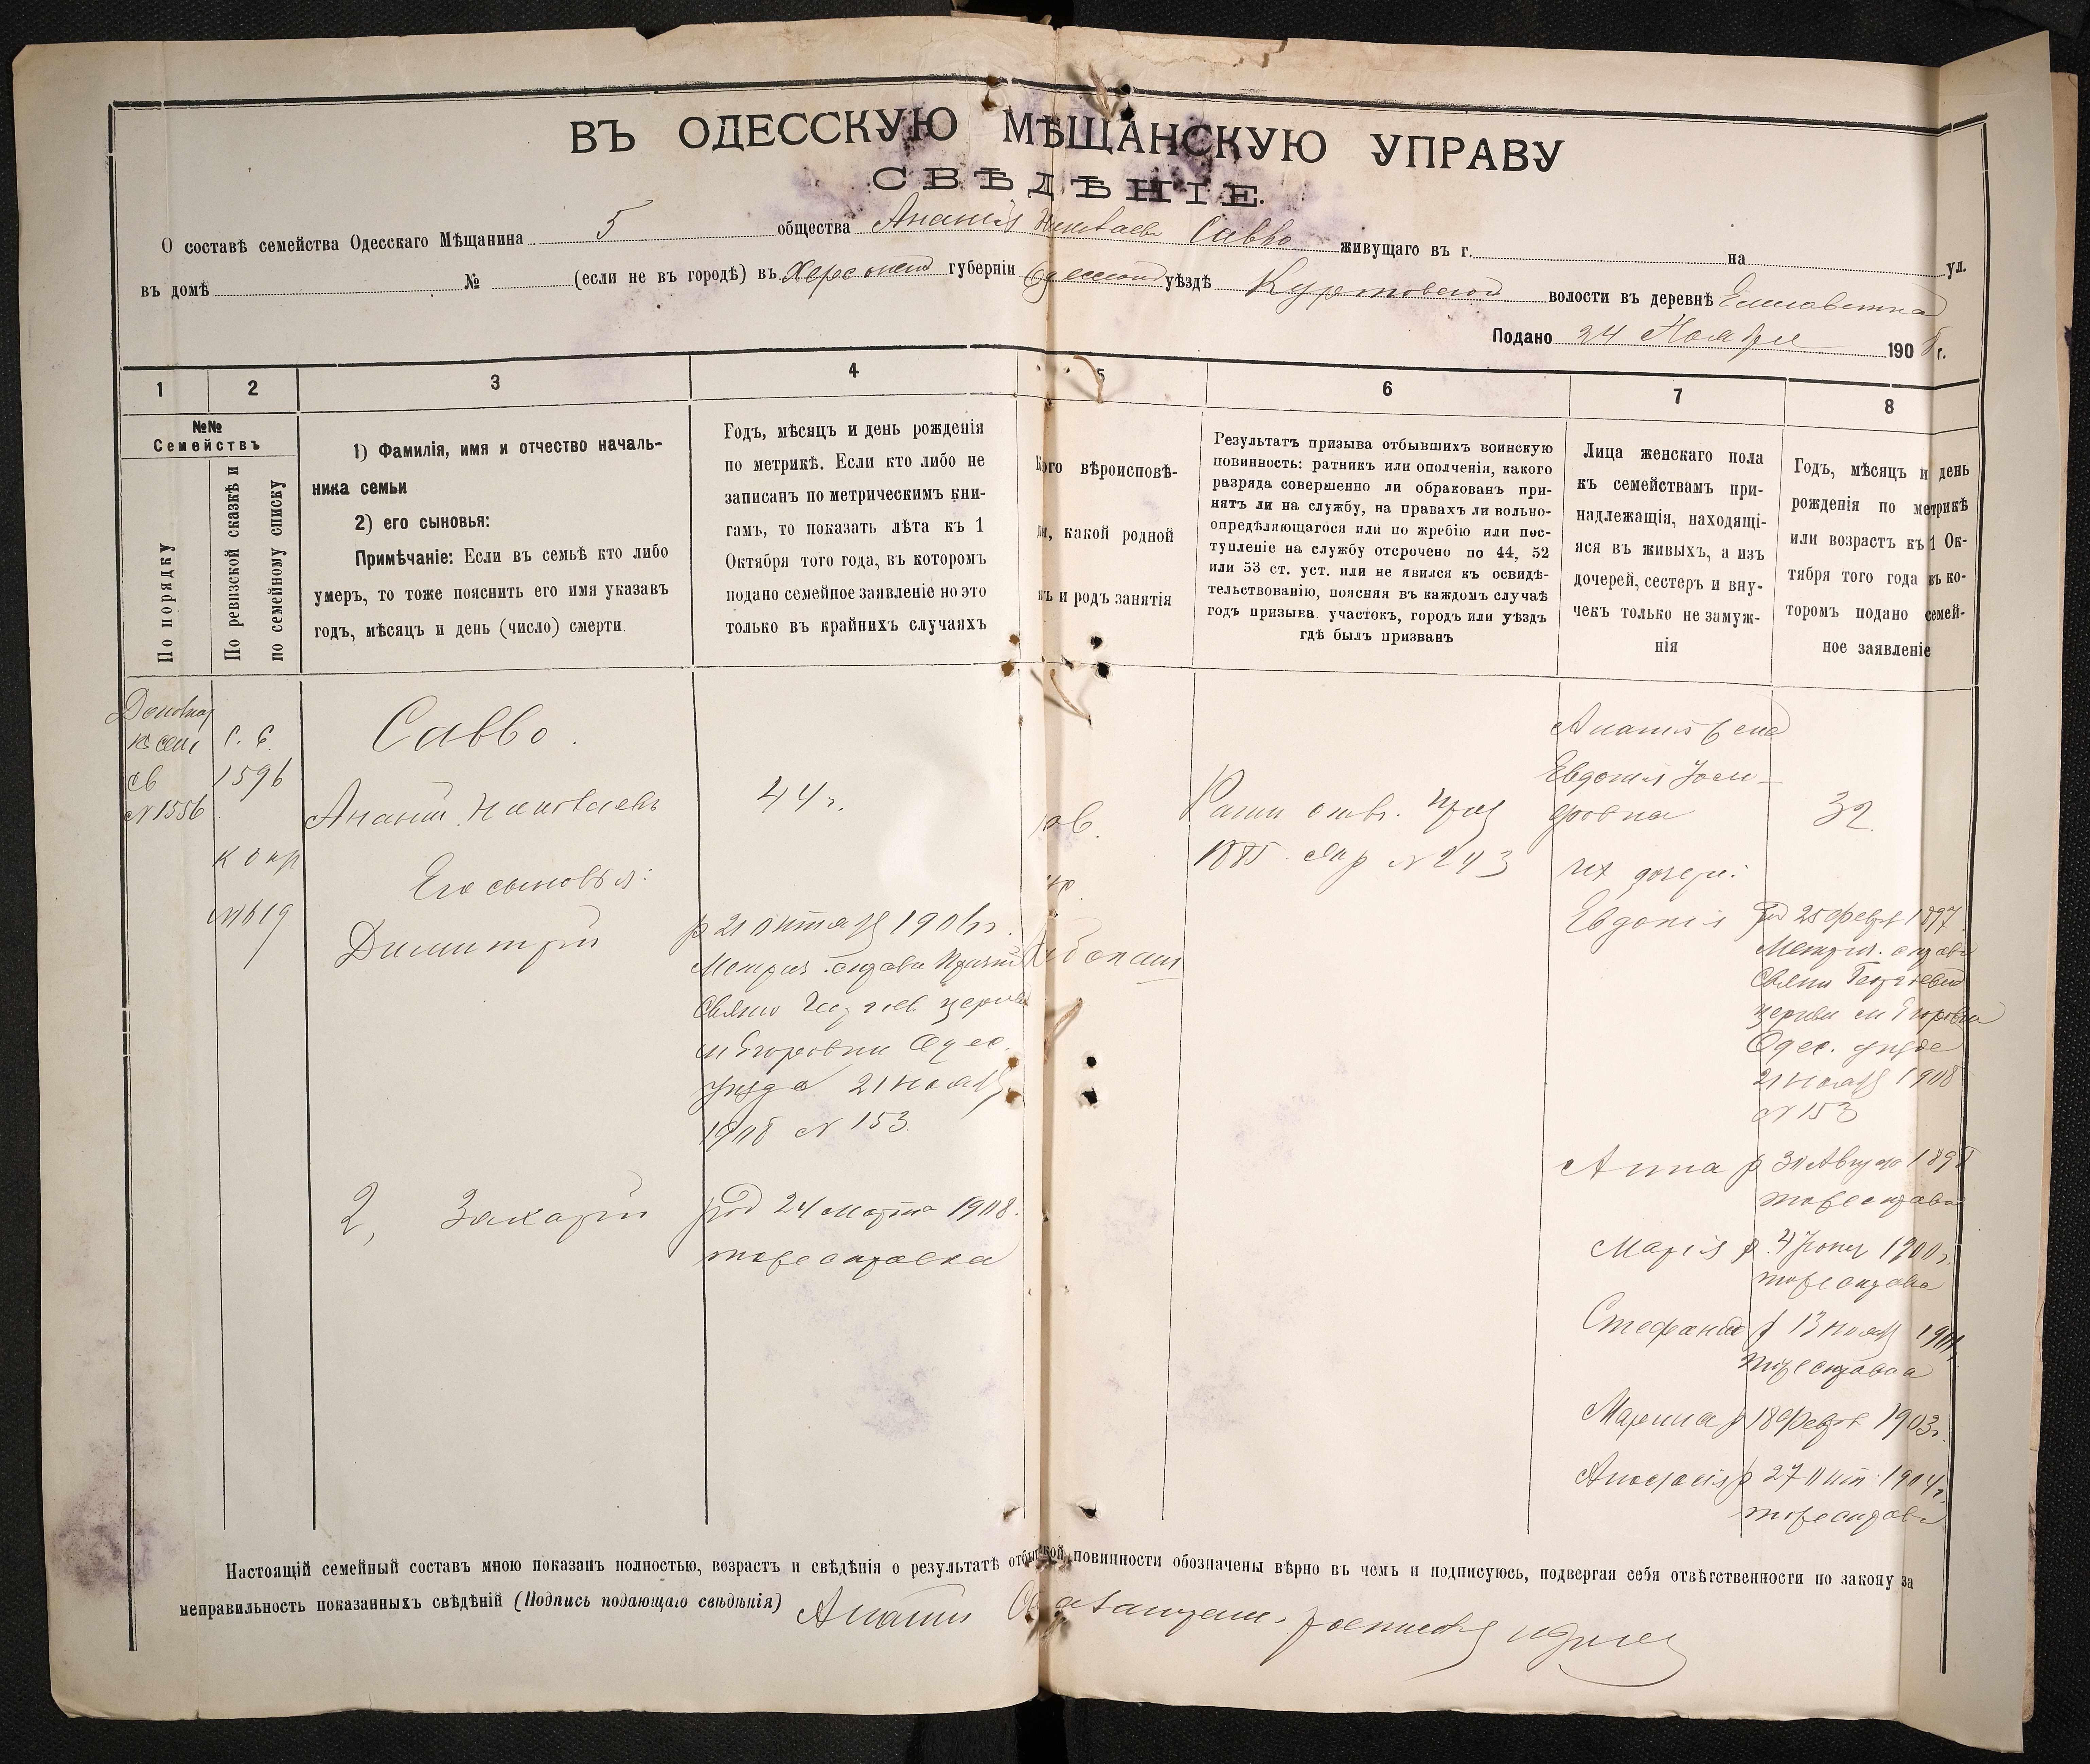 ВЪ ОДЕССКУЮ МѢЩАНСКУЮ УПРАВУ
СВѢДѢНІЕ.
О составѣ семейства Одесскаго Мѣщанина 5 общества Ананія Савво живущаго въ г. на ул.
въ домѣ № (если не въ городѣ) въ Херсонской губерніи Одесской уѣздѣ Куртовской волости въ деревнѣ
Подано 24 Ноября 1908 г.
1 2 3 4 5 6 7 8
№№
Семействъ
По порядку
По ревизской сказкѣ и
по семейному списку
1) Фамилія, имя и отчество началь-
ника семьи
2) его сыновья:
Примѣчаніе: Если въ семьѣ кто либо
умеръ, то тоже пояснить его имя указавъ
годъ, мѣсяцъ и день (число) смерти.
Годъ, мѣсяцъ и день рожденія
по метрикѣ. Если кто либо не
записанъ по метрическимъ кни-
гамъ, то показать лѣта къ 1
Октября того года, въ которомъ
подано семейное заявленіе но это
только въ крайнихъ случаяхъ
Кого вѣроисповѣ-
ди, какой родной
къ и родъ занятія
Результатъ призыва отбывшихъ воинскую
повинность: ратникъ или ополченія, какого
разряда совершенно ли обракованъ при-
нятъ ли на службу, на правахъ ли вольно-
опредѣляющагося или по жребію или пос-
тупленіе на службу отсрочено по 44, 52
или 53 ст. уст. или не явился къ освидѣ-
тельствованію, поясняя въ каждомъ случаѣ
годъ призыва. участокъ, городъ или уѣздъ
гдѣ былъ призванъ
Лица женскаго пола
къ семействамъ при-
надлежащія, находящі-
яся въ живыхъ, а изъ
дочерей, сестеръ и вну-
чекъ только не замуж-
нія
Годъ, мѣсяцъ и день
рожденія по метрикѣ
или возрастъ къ 1 Ок-
тября того года въ ко-
торомъ подано семей-
ное заявленіе
№ 1556
1596
№ 1619
Савво.
Ананій
44 г.
Его сыновья:
Димитрій
р 21 октяб 1906 г.
Метрич. справк
Свято Георгіев церкви
Одес.
уѣзда 21 нояб
1908 № 153.
2, Захарій
род 24 марта 1908.
тоже справка
1885 № 243
Ананія жена
Евдокія
32
их дочери:
Евдокія род 25 Февр 1897
Метрич. справк
Свято Георгіевск
церкви
Одес. уѣзда
21 нояб 1908
№ 153
Анна р 30 Августа 1898
тоже справка
Марія р. 4 Іюня 1900 г.
тоже справка
Стефанида р 13 нояб
тоже справка
Марина р 18 Февр 1903 г.
Анастасія р 27 Окт 1904 г.
тоже справка
Настоящій семейный составъ мною показанъ полностью, возрастъ и свѣдѣнія о результатѣ повинности обозначены вѣрно въ чемъ и подписуюсь, подвергая себя отвѣтственности по закону за
неправильность показанныхъ свѣдѣній (Подпись подающаго свѣдѣнія) Ананій